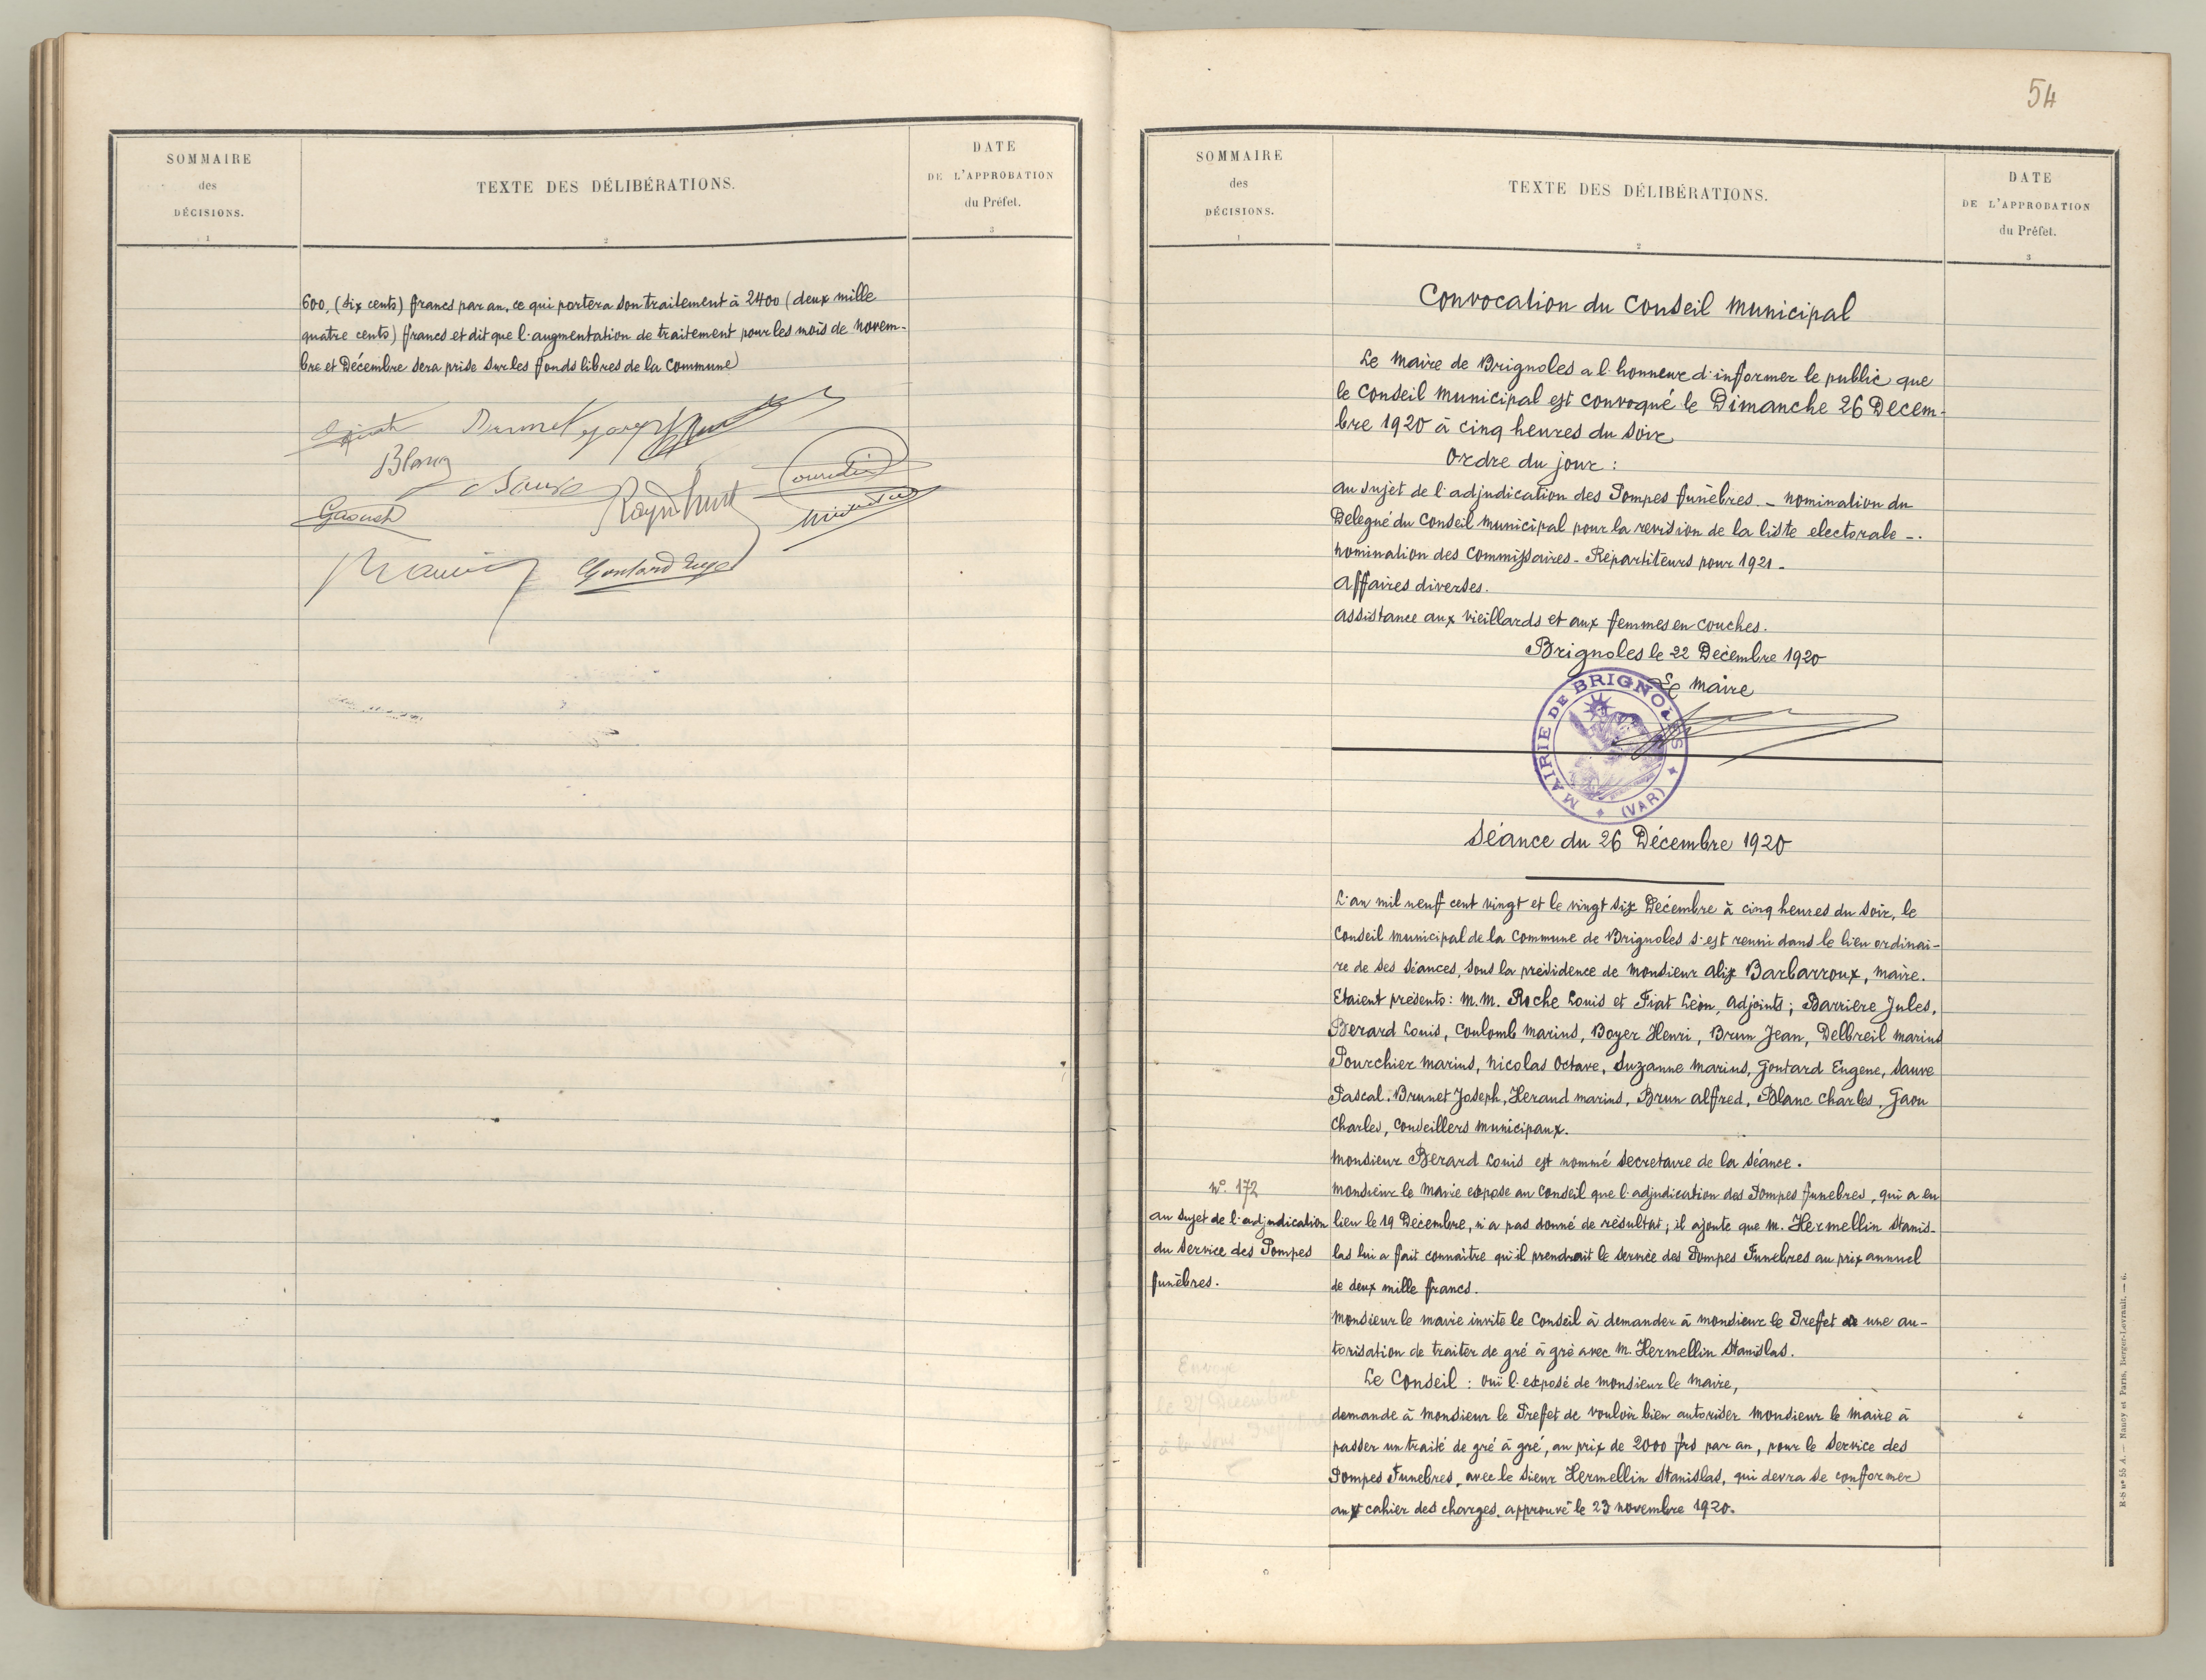 SOMMAIRE
des
DÉCISIONS.
1
TEXTE DES DÉLIBÉRATIONS.
2
DATE
DE L'APPROBATION
du Préfet.
3
600, (six cents) francs par an, ce qui portera son traitement à 2400 (deux mille
quatre cents) francs et dit que l'augmentation de traitement pour les mois de Novem-
bre et Décembre sera prise sur les fonds libres de la Commune
Brunet
Blanc
Sauve
Gontard Eug
54
SOMMAIRE
des
DÉCISIONS.
1
TEXTE DES DÉLIBÉRATIONS.
2
DATE
DE L'APPROBATION
du Préfet.
3
Convocation du Conseil Municipal
Le Maire de Brignoles a l'honneur d'informer le public que
le Conseil Municipal est convoqué le Dimanche 26 Decem-
bre 1920 à cinq heures du soir
Ordre du jour :
au sujet de l'adjudication des Pompes funèbres - nomination du
Delegué du Conseil Municipal pour la revision de la liste electorale -.
nomination des Commissaires - Répartiteurs pour 1921 -
Affaires diverses.
assistance aux vieillards et aux femmes en couches.
Brignoles le 22 Décembre 1920
Le Maire
MAIRIE DE BRIGNOLES
(VAR)
Séance du 26 Décembre 1920
L'an mil neuf cent vingt et le vingt six Decembre à cinq heures du soir, le
Conseil Municipal de la Commune de Brignoles s'est reuni dans le lieu ordinai-
re de ses séances, sous la présidence de Monsieur Alix Barbarroux, Maire.
Etaient présents : M.M. Roche Louis et Fiat Léon, Adjoints ; Barriere Jules,
Berard Louis, Coulomb Marius, Boyer Henri, Brun Jean, Delbreil Marius
Pourchier Marius, Nicolas Octave, Suzanne Marius, Gontard Eugene, Sauve
Pascal, Brunet Joseph, Heraud Marius, Brun Alfred, Blanc Charles, Gaou
Charles, Conseillers Municipaux.
Monsieur Berard Louis est nommé secretaire de la séance.
N°. 172
au sujet de l'adjudication
du Service des Pompes
funèbres.
Monsieur le Maire expose au Conseil que l'adjudication des Pompes funebres, qui a eu
lieu le 19 Décembre, n'a pas donné de résultat ; il ajoute que M. Hermellin Stanis-
las lui a fait connaître qu'il prendrait le service des Pompes Funebres au prix annuel
de deux mille francs.
Monsieur le maire invite le Conseil à demander à monsieur le Prefet une au-
torisation de traiter de gré à gré avec M. Hermellin Stanislas.
Envoyé
le 27 Decembre
à la Sous
Le Conseil : ouï l'exposé de Monsieur le Maire,
demande à Monsieur le Prefet de vouloir bien autoriser Monsieur le Maire à
passer un traité de gré à gré, au prix de 2000 frs par an, pour le service des
Pompes Funebres, avec le sieur Hermellin Stanislas, qui devra se conformer
aux cahier des charges, approuvé le 23 Novembre 1920.
R-S n° 55 A. — Nancy et Paris, Berger-Levrault. — 6.